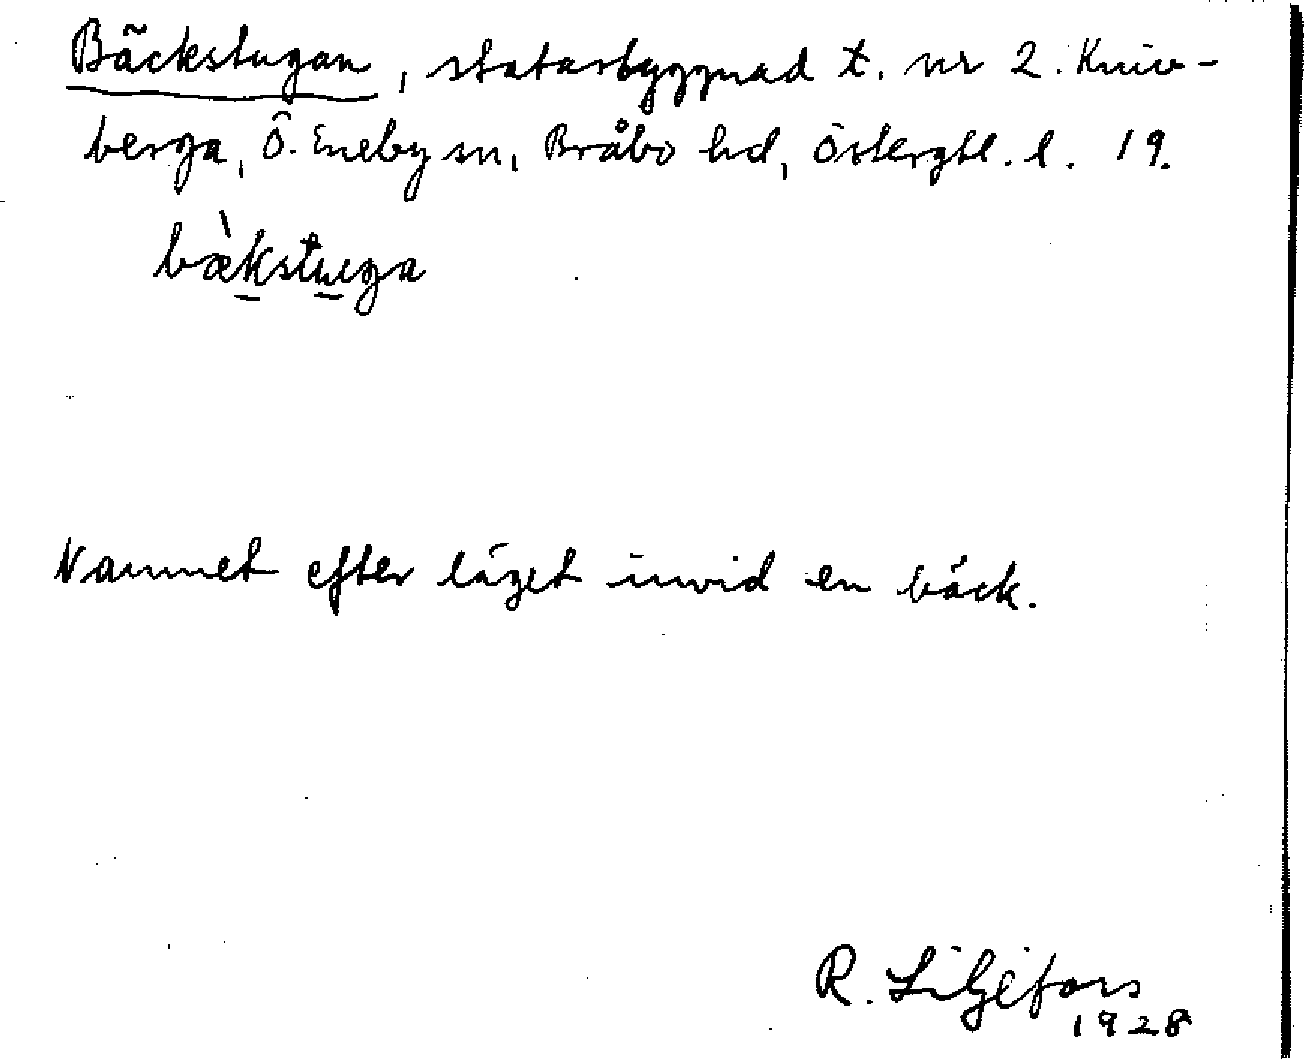 Bäckstugan, statarbyggnad t. nr 2. Kniv-
berga, Ö. Eneby sn, Bråbo hd, Östergtl. l. 19.
bæ̀kstuga
Namnet efter läget invid en bäck.
R. Liljefors
1928